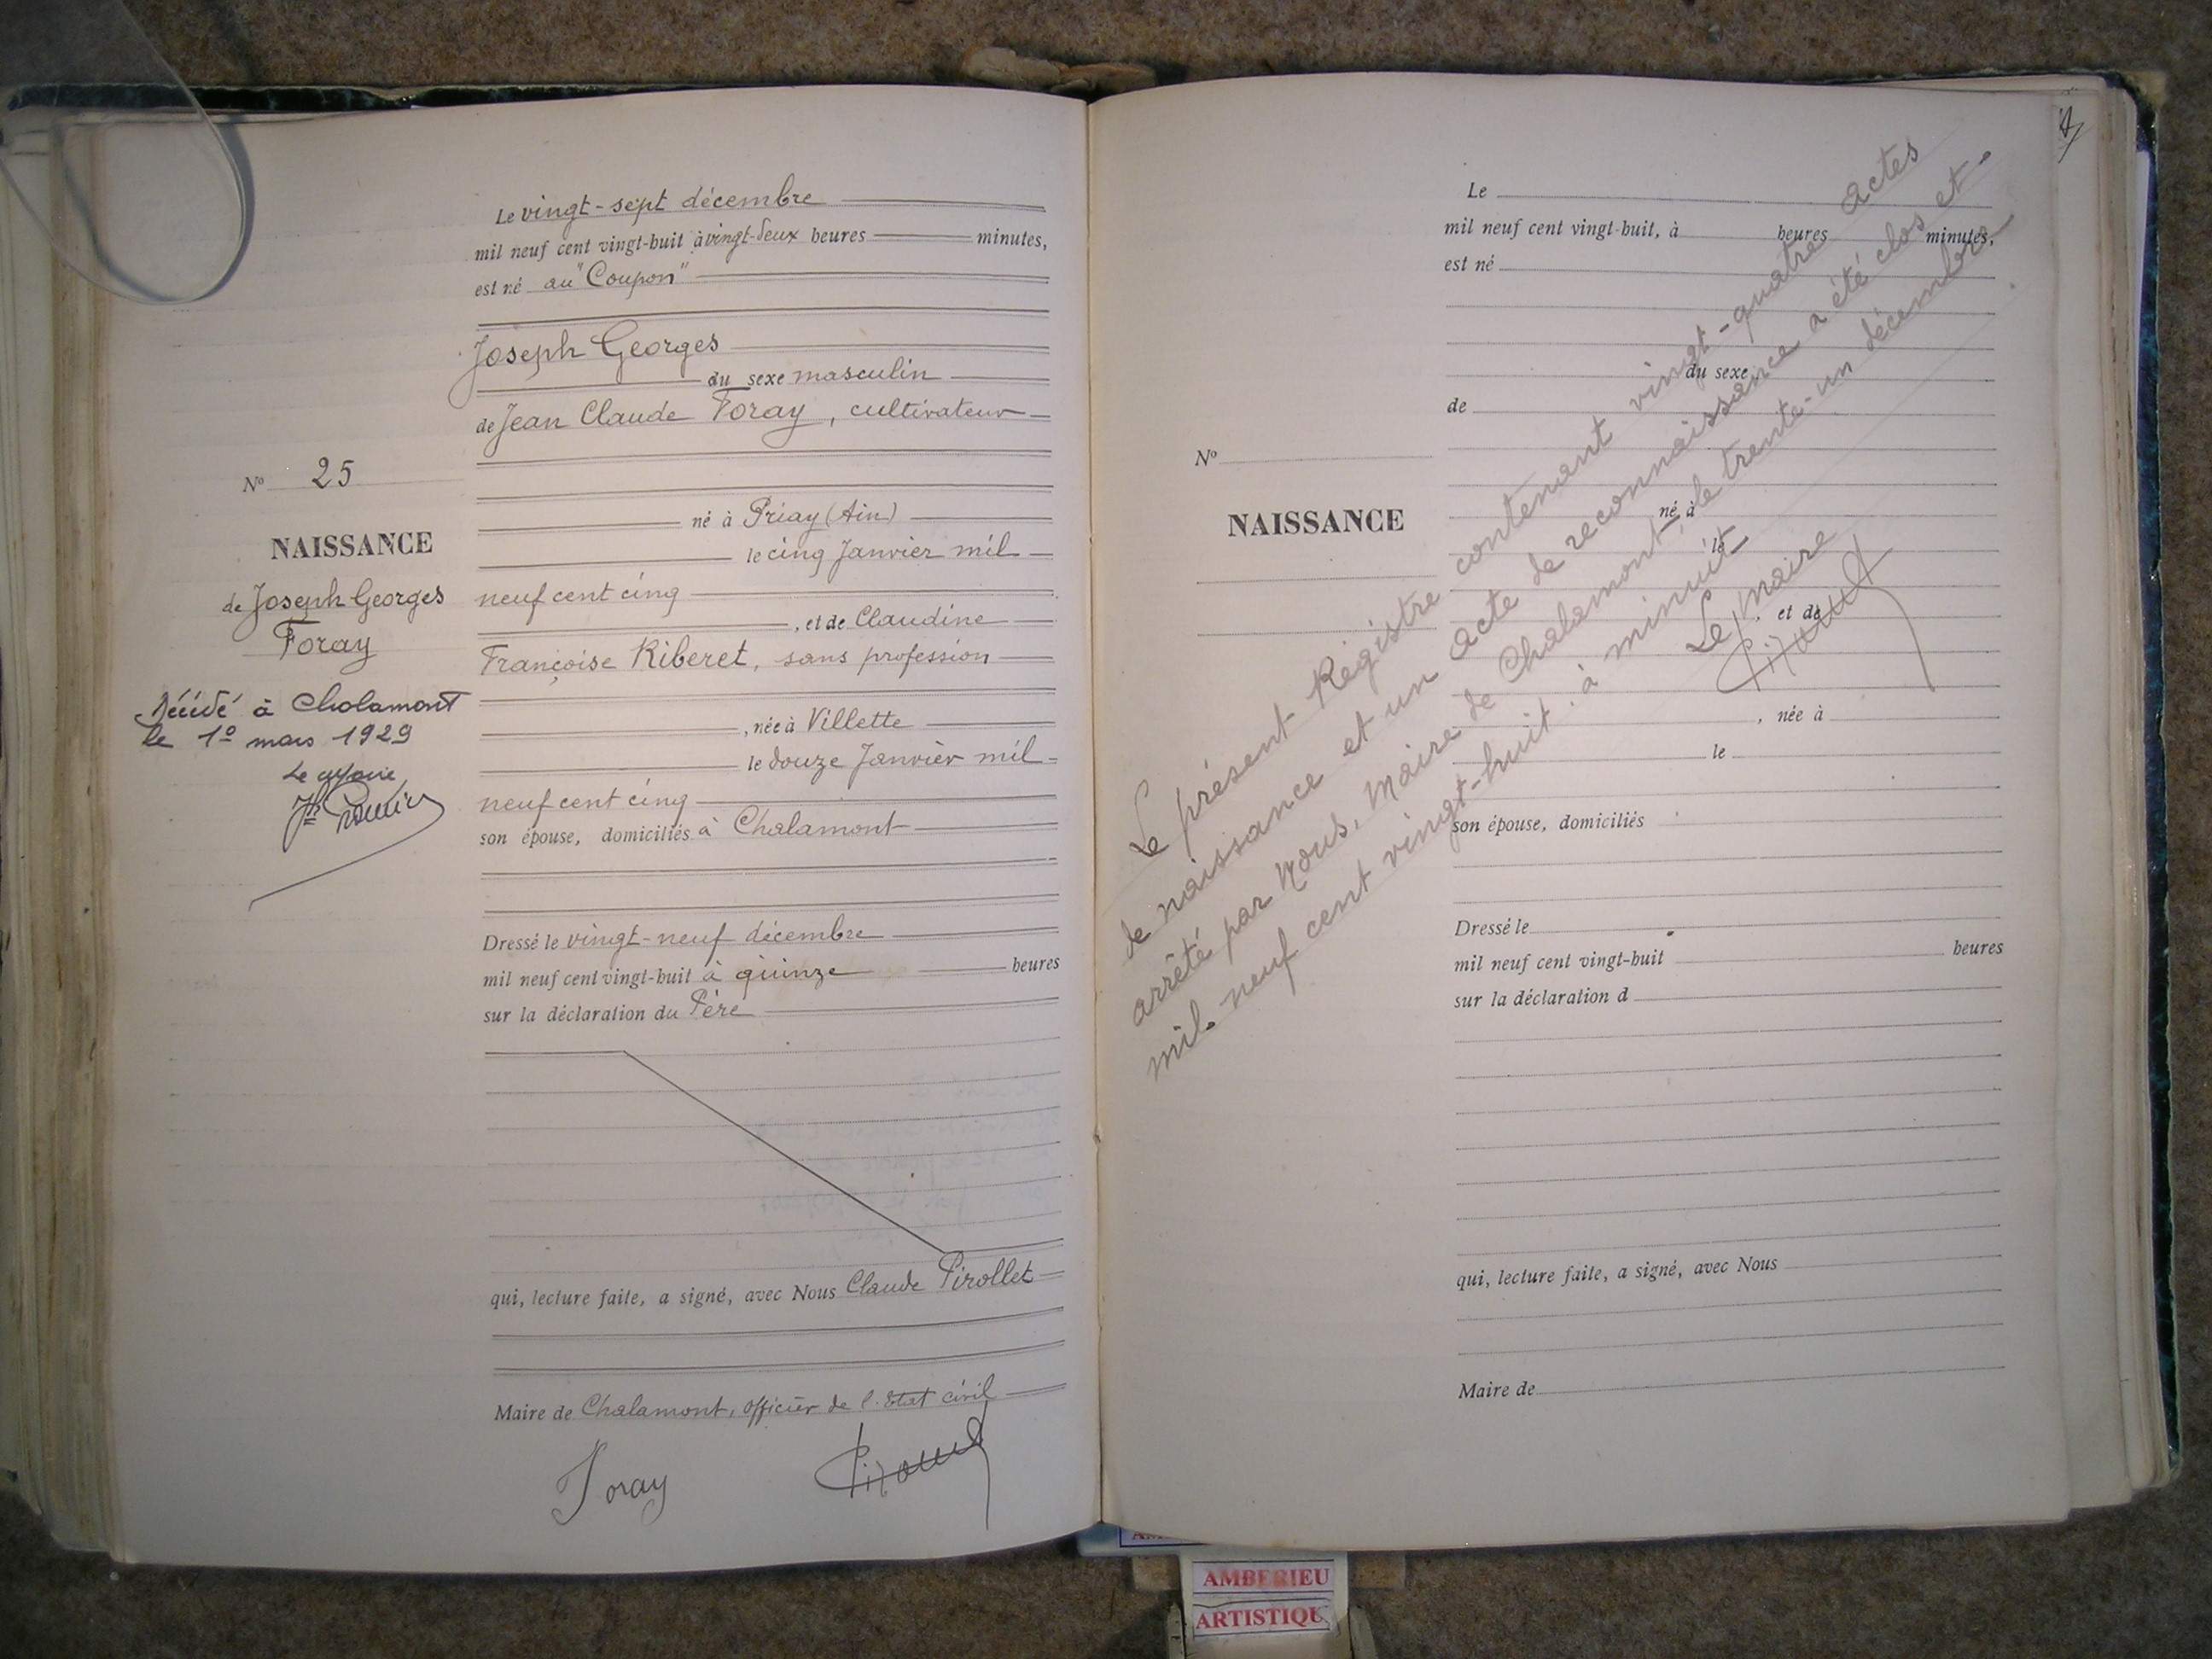 Le vingt-sept décembre
mil neuf cent vingt-huit à vingt-deux heures minutes,
est né au "Coupon"
Joseph Georges
du sexe masculin
de Jean Claude Foray, cultivateur
né à Priay (Ain)
le cinq Janvier mil
neuf cent cinq
, et de Claudine
Françoise Riberet, sans profession
, née à Villette
le douze Janvier mil
neuf cent cinq
son épouse, domiciliés à Chalamont
Dressé le vingt-neuf décembre
mil neuf cent vingt-huit à quinze heures
sur la déclaration du Père
qui, lecture faite, a signé, avec Nous Claude Pirollet
Maire de Chalamont, officier de l'Etat civil
Foray
No 25
NAISSANCE
de Joseph Georges
Foray
Décédé à Chalamont
le 1o mars 1929
Le
Le
mil neuf cent vingt-huit, à heures minutes,
est né
du sexe
de
No
NAISSANCE
né à
le
, et de
, née à
le
son épouse, domiciliés
Dressé le
mil neuf cent vingt-huit heures
sur la déclaration d
qui, lecture faite, a signé, avec Nous
Maire de
Le présent Registre contenant vingt-quatre actes
de naissance et un acte de reconnaissance a été clos et
arrêté par Nous, Maire de Chalamont, le trente-un décembre
mil neuf cent vingt-huit à minuit
Le Maire
AMBERIEU
ARTISTIQU